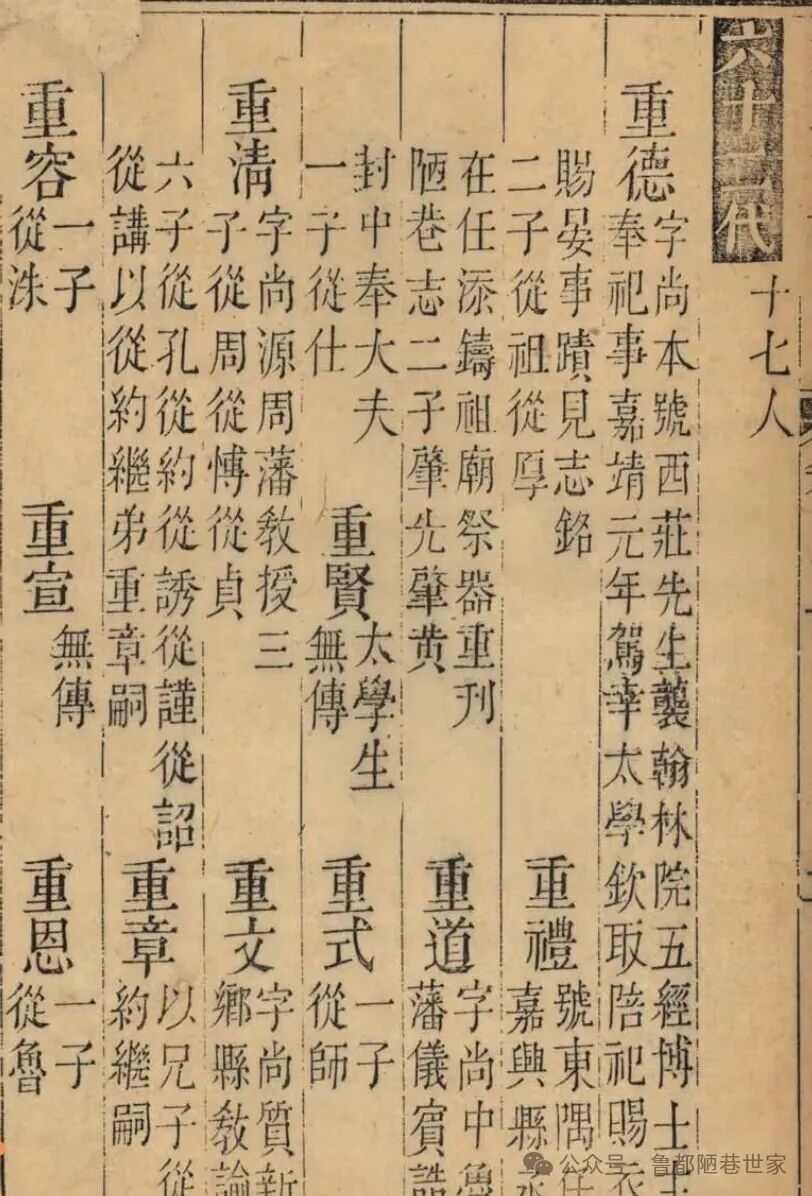 六十二代
十七人
重德
字尚本號西莊先生襲翰林院五經博士主
奉祀事嘉靖元年駕幸太學欽取陪祀賜衣
賜晏事蹟見志銘
二子從祖從厚
重禮
號東隅任
嘉興縣丞
在任添鑄祖廟祭器重刊
陋巷志二子肇先肇黄
重道
字尚中魯
藩儀賓誥
封中奉大夫
一子從仕
重賢
太學生
無傳
重式
一子
從師
重清
字尚源周藩教授三
子從周從愽從貞
重文
字尚質新
鄉縣教諭
六子從孔從約從誘從謹從詔
從講以從約繼弟重章嗣
重章
以兄子從
約繼嗣
重容
一子
從洙
重宣
無傳
重恩
一子
從魯
公众号 · 鲁都陋巷世家